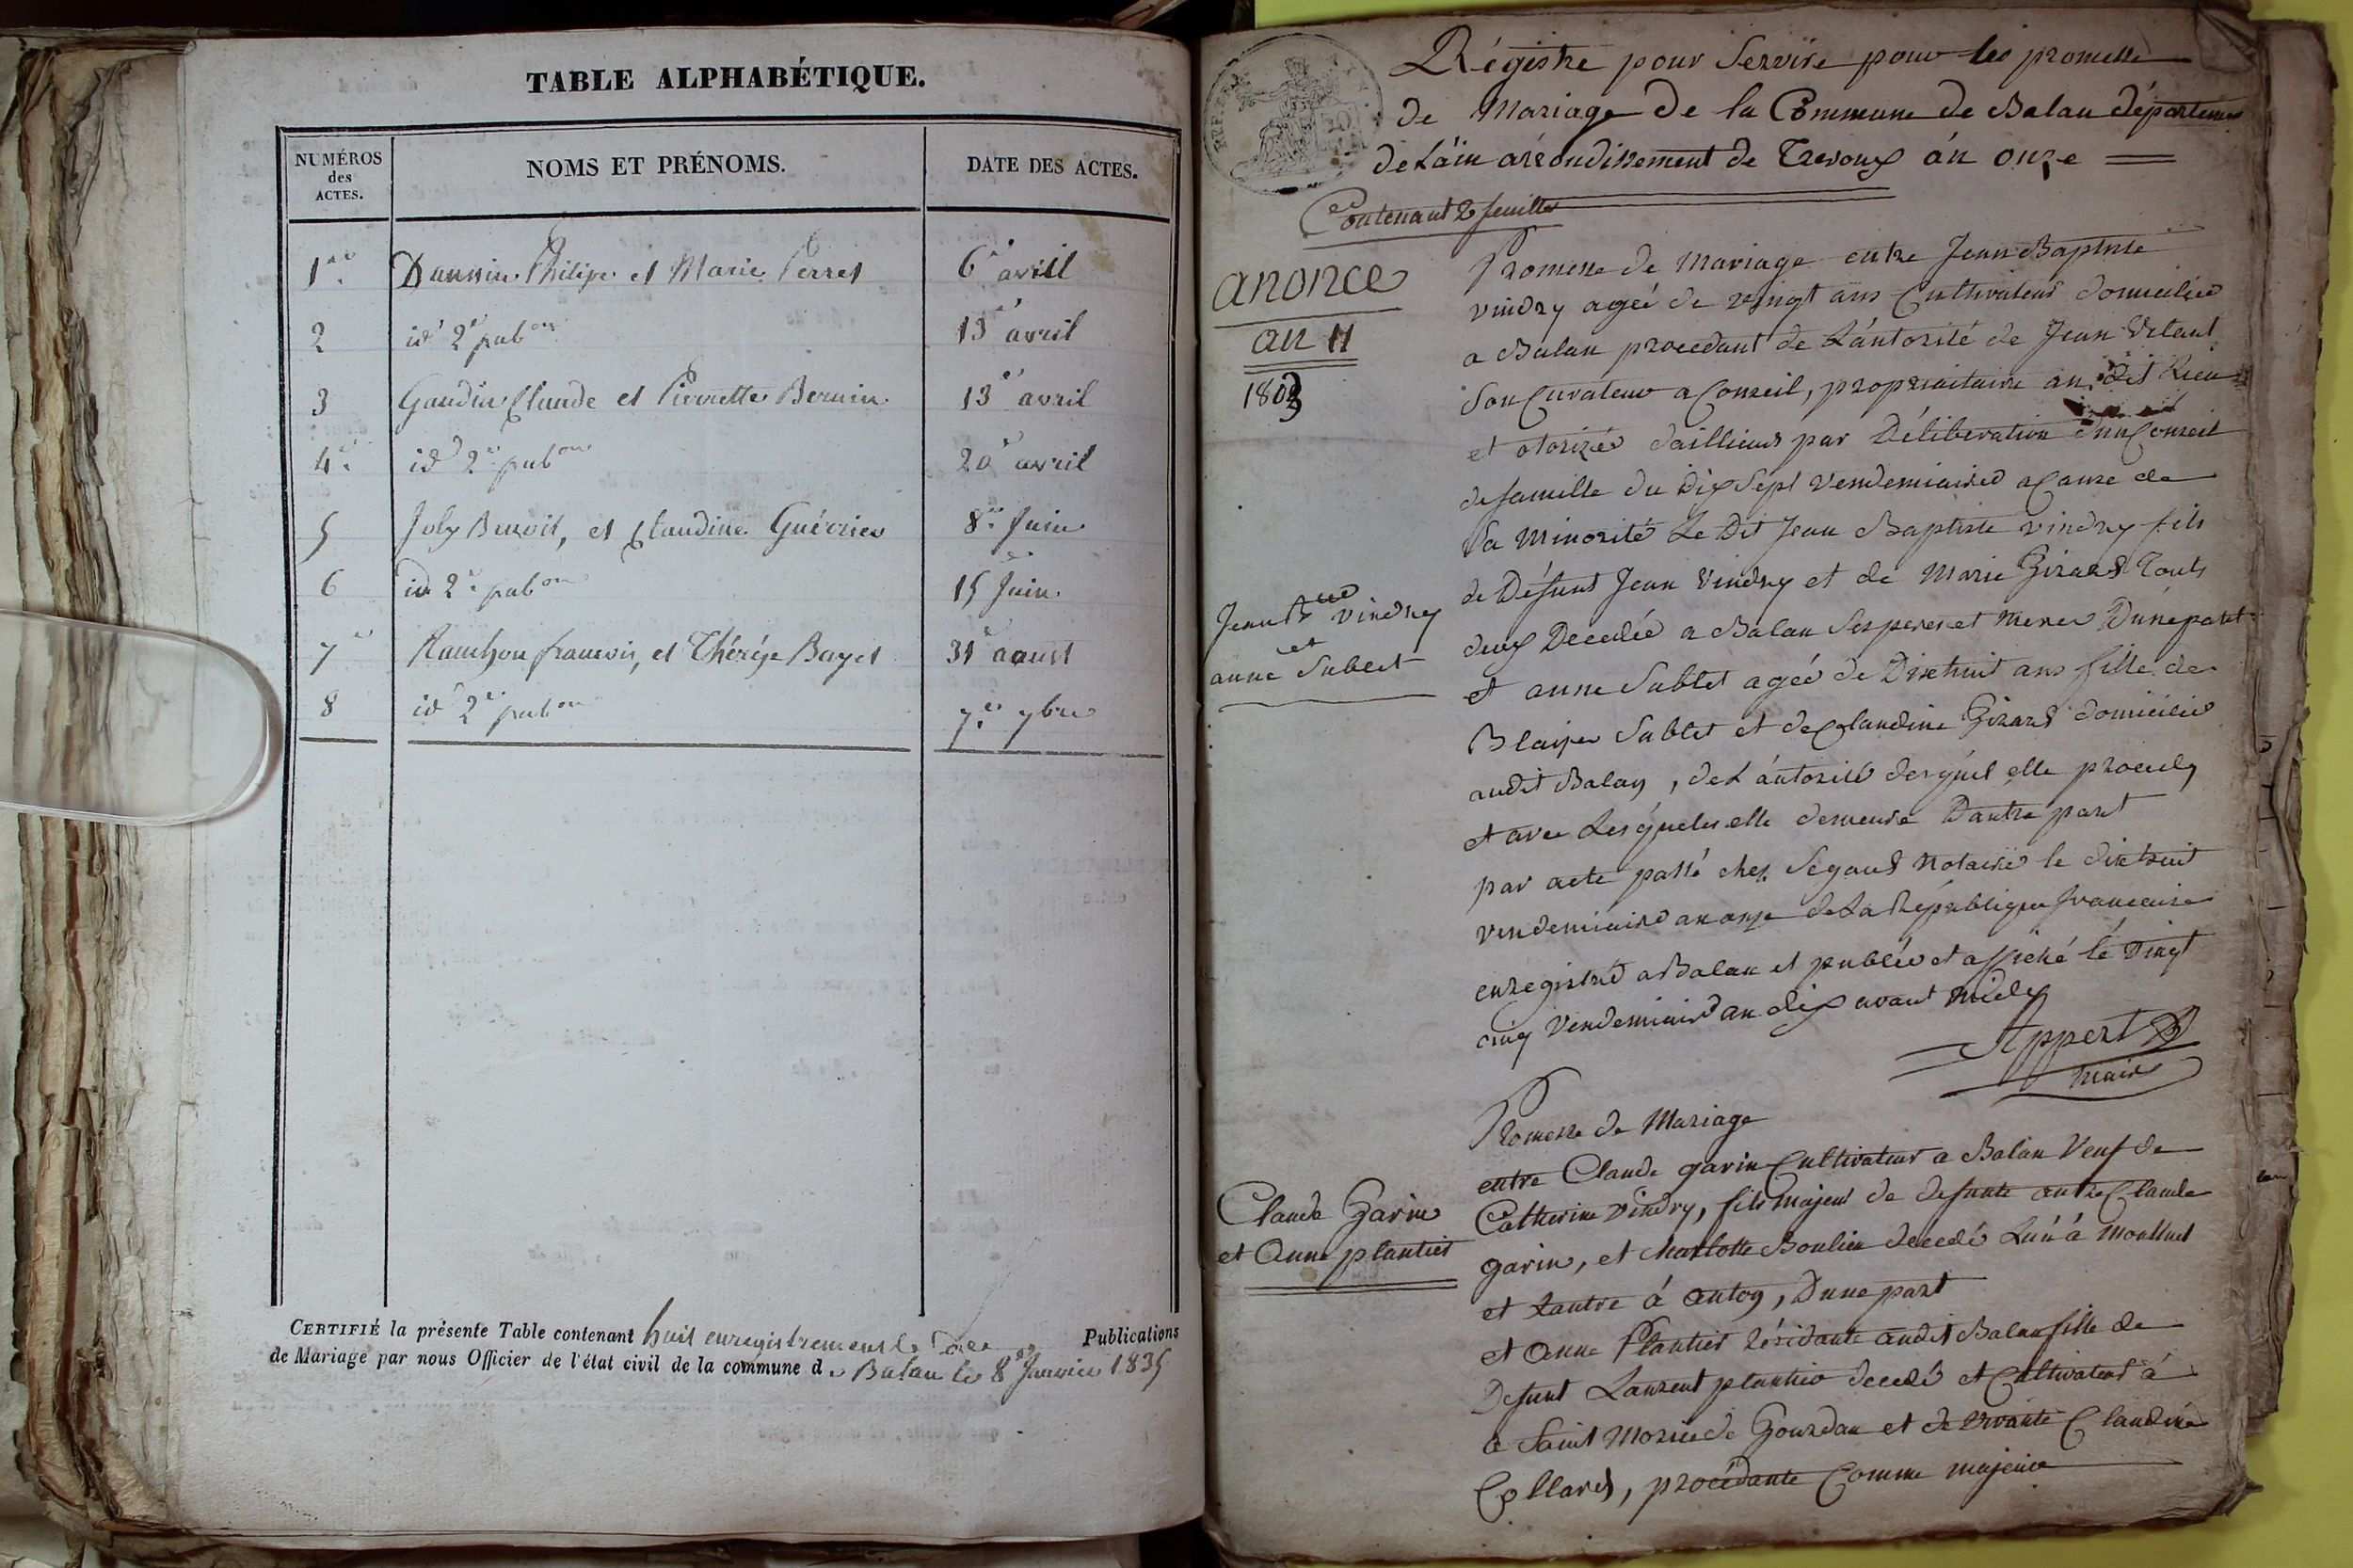 TABLE ALPHABÉTIQUE.
NUMÉROS des ACTES.
NOMS ET PRÉNOMS.
DATE DES ACTES.
1er Philipe et Marie Perret 6 avril
2 id 2e pubon 13 avril
3 Gaudin Claude et Pierrette Bernin 13 avril
4e id 2e pubon 20 avril
5 Joly Benoit, et Claudine Guérrier 8e Juin
6 id 2e pubon 15 Juin
7e francois, et Thérèze Bayet 31 aoust
8 id 2e pubon 7e 7bre
CERTIFIÉ la présente Table contenant huit enregistrements de Publications
de Mariage par nous Officier de l'état civil de la commune de Balan le 8 Janvier 1835
Régistre pour Servire pour les promesse
de Mariage de la Commune de Balan département
de Láin arrondissement de Trevoux án onze
Contenant 2 feuilles
anonce
an 11
1803
Promesse de Mariage entre Jean Baptiste
vindry ageé de vingt ans Cultivateur domicilié
a Balan procedant de Lántorité de Jean
son Curateur a Conseil, propriaitaire au dit lieu
et otorizé daillieurs par Déliberation dun Conseil
de famille du dix Sept vendemiaire a Cause de
Sa Minorité Le Dit Jean Baptiste vindry fils
de Défunt Jean Vindry et de Marie Girard Touts
deux Decedée a Balan Ses peres et Meres Dúne part
Jean Bte vindry
et
anne Sublet
et anne Sublet ageé de Dixhuit ans fille de
Blaise Sublet et de Claudine Girard domicilié
audit Balan, de Lántorité desqúel elle procede
et avec Lesqúeles elle demeure Dautre part
par acte passé chez Segaud Notaire le dixhuit
vendemiaire an onze de La République francaise
enregistré a Balan et publié et affiché lé Vingt
cinq Vendemiaire an dix avant Midy
Appert
Maire
Promesse de Mariage
entre Claude garin Cultivateur a Balan Veuf de
Catherine vindry, fils Majeur de defunte Claude
garin, et charlotte Boulieu decedé Lun á Montluel
et Lautre á anton, Dune part
Claude Garin
et Anne plantier
et Anne Plantier Residante audit Balan fille de
Defunt Laurent plantier decedé et Cultivateur á
a Saint Morice de Gourdan et de vivante Claudine
Collard, procédante Comme majeure